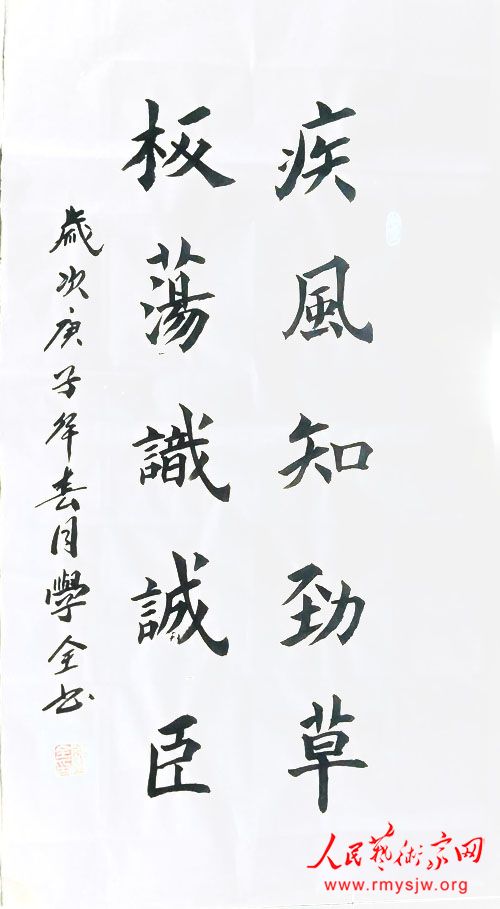 疾風知勁草
板蕩識誠臣
歲次庚子年春月學全书
人民艺術家网
www.rmysjw.org